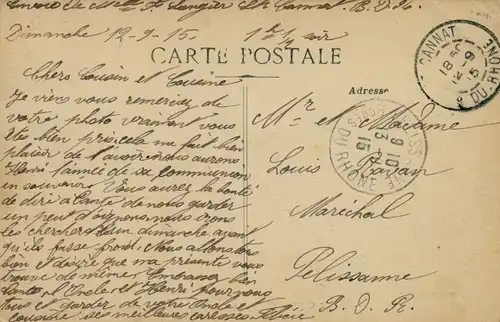 Envoi de Melle F. Laugier St Cannat B.D.R.
Dimanche 12-9-15 1h½ soir
CARTE POSTALE
Chers Cousin et Cousine
Adresse
Je viens vous remercier de
votre photo vraiment vous
êtes bien pris, cela me fait bien
plaisir de l'avoir nous aurons
Henri l'année de sa communion
en souvenir. Vous aurez la bonté
de dire à tante de nous garder
un peu d'oignons nous irons
les chercher un dimanche avant
qu'ils fasse froid. Nous allons très
bien et désire que ma présente vous
trouve de même. Embrassez bien
tante, l'Oncle et Henri pour nous
tous et garder de votre Oncle et
cousine ses meilleures caresses
Mr et Madame
Louis
Maréchal
Pélissanne
B. D. R.
CANNAT
18 35
13 -9
15
DU-RHONE
9 10
13 9
15
DU RHONE